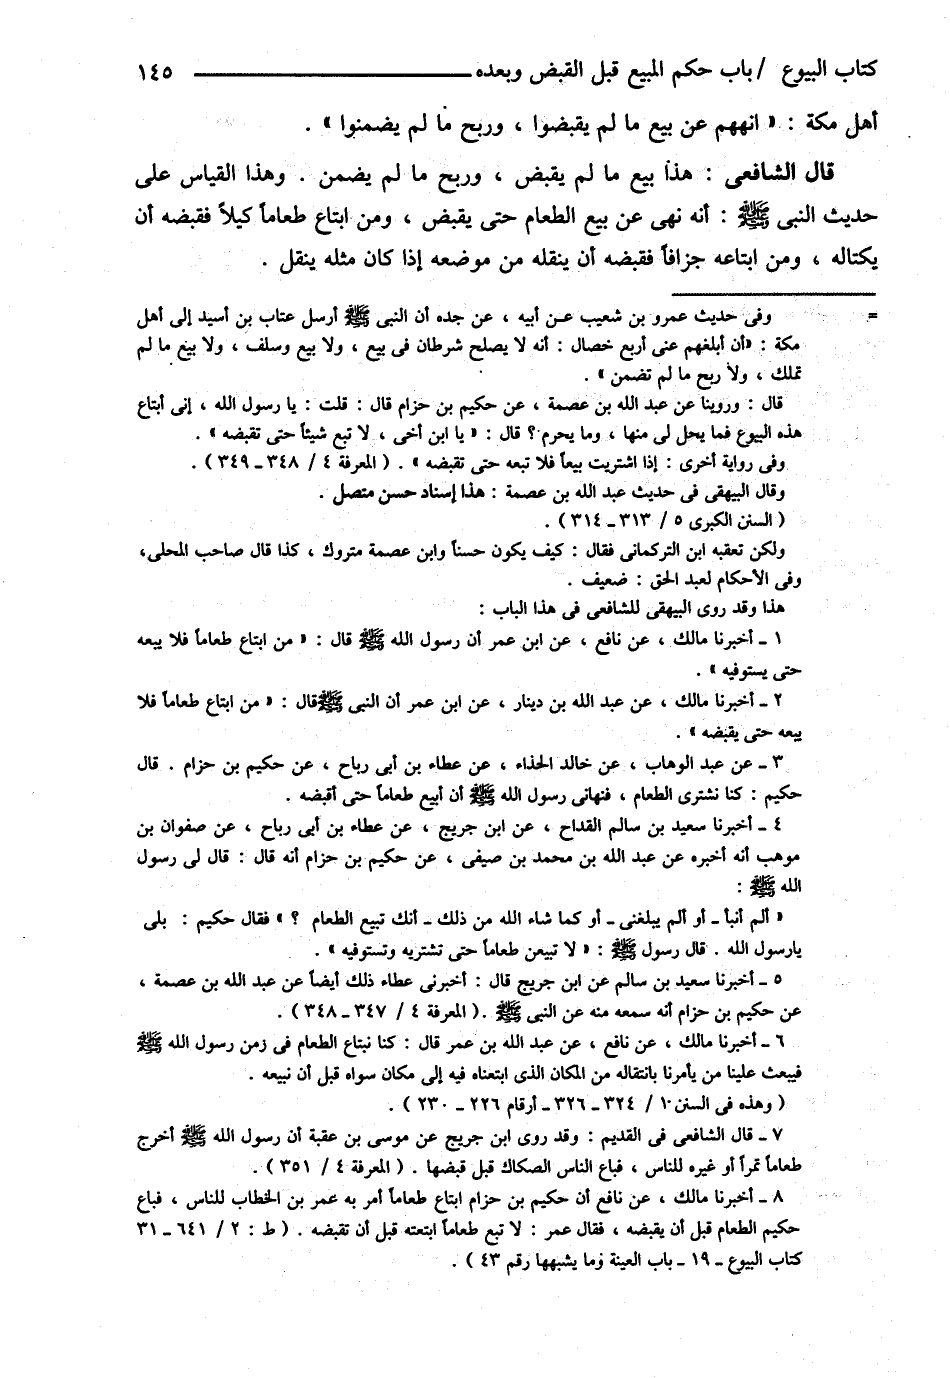 كتاب البيوع / باب حكم المبيع قبل القبض وبعده ــــــــــ ١٤٥
أهل مكة : « انههم عن بيع ما لم يقبضوا ، وربح ما لم يضمنوا » .
قال الشافعى : هذا بيع ما لم يقبض ، وربح ما لم يضمن . وهذا القياس على
حديث النبى ﷺ : أنه نهى عن بيع الطعام حتى يقبض ، ومن ابتاع طعاماً كيلاً فقبضه أن
يكتاله ، ومن ابتاعه جزافاً فقبضه أن ينقله من موضعه إذا كان مثله ينقل .
= وفى حديث عمرو بن شعيب عـن أبيه ، عن جده أن النبى ﷺ أرسل عتاب بن أسيد إلى أهل
مكة : «أن أبلغهم عنى أربع خصال : أنه لا يصلح شرطان فى بيع ، ولا بيع وسلف ، ولا بيع ما لم
تملك ، ولا ربح ما لم تضمن » .
قال : وروينا عن عبد الله بن عصمة ، عن حكيم بن حزام قال : قلت : يا رسول الله ، إنى أبتاع
هذه البيوع فما يحل لى منها ، وما يحرم ؟ قال : « يا ابن أخى ، لا تبع شيئاً حتى تقبضه » .
وفى رواية أخرى : إذا اشتريت بيعاً فلا تبعه حتى تقبضه » . ( المعرفة ٤ / ٣٤٨ ـ ٣٤٩ ) .
وقال البيهقى فى حديث عبد الله بن عصمة : هذا إسناد حسن متصل .
( السنن الكبرى ٥ / ٣١٣ ـ ٣١٤ ) .
ولكن تعقبه ابن التركمانى فقال : كيف يكون حسناً وابن عصمة متروك ، كذا قال صاحب المحلى،
وفى الأحكام لعبد الحق : ضعيف .
هذا وقد روى البيهقى للشافعى فى هذا الباب :
١ ـ أخبرنا مالك ، عن نافع ، عن ابن عمر أن رسول الله ﷺ قال : « من ابتاع طعاماً فلا يبعه
حتى يستوفيه » .
٢ ـ أخبرنا مالك ، عن عبد الله بن دينار ، عن ابن عمر أن النبى ﷺ قال : « من ابتاع طعاماً فلا
يبعه حتى يقبضه » .
٣ ـ عن عبد الوهاب ، عن خالد الحذاء ، عن عطاء بن أبى رباح ، عن حكيم بن حزام . قال
حكيم : كنا نشترى الطعام ، فنهانى رسول الله ﷺ أن أبيع طعاماً حتى أقبضه .
٤ ـ أخبرنا سعيد بن سالم القداح ، عن ابن جريج ، عن عطاء بن أبى رباح ، عن صفوان بن
موهب أنه أخبره عن عبد الله بن محمد بن صيفى ، عن حكيم بن حزام أنه قال : قال لى رسول
الله ﷺ :
« ألم أنبأ ـ أو ألم يبلغنى ـ أو كما شاء الله من ذلك ـ أنك تبيع الطعام ؟ » فقال حكيم : بلى
يارسول الله . قال رسول ﷺ : « لا تبيعن طعاماً حتى تشتريه وتستوفيه » .
٥ ـ أخبرنا سعيد بن سالم عن ابن جريج قال : أخبرنى عطاء ذلك أيضاً عن عبد الله بن عصمة ،
عن حكيم بن حزام أنه سمعه منه عن النبى ﷺ .( المعرفة ٤ / ٣٤٧ ـ ٣٤٨ ) .
٦ ـ أخبرنا مالك ، عن نافع ، عن عبد الله بن عمر قال : كنا نبتاع الطعام فى زمن رسول الله ﷺ
فيبعث علينا من يأمرنا بانتقاله من المكان الذى ابتعناه فيه إلى مكان سواه قبل أن نبيعه .
( وهذه فى السنن ١٠ / ٣٢٤ ـ ٣٢٦ ـ أرقام ٢٢٦ ـ ٢٣٠ ) .
٧ ـ قال الشافعى فى القديم : وقد روى ابن جريج عن موسى بن عقبة أن رسول الله ﷺ أخرج
طعاماً تمراً أو غيره للناس ، فباع الناس الصكاك قبل قبضها . ( المعرفة ٤ / ٣٥١ ) .
٨ ـ أخبرنا مالك ، عن نافع أن حكيم بن حزام ابتاع طعاماً أمر به عمر بن الخطاب للناس ، فباع
حكيم الطعام قبل أن يقبضه ، فقال عمر : لا تبع طعاماً ابتعته قبل أن تقبضه . ( ط : ٢ / ٦٤١ ـ ٣١
كتاب البيوع ـ ١٩ ـ باب العينة وما يشبهها رقم ٤٣ ) .